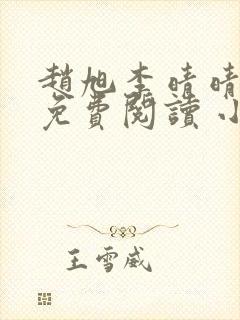 趙旭李晴晴
免費閱讀小
王雪威